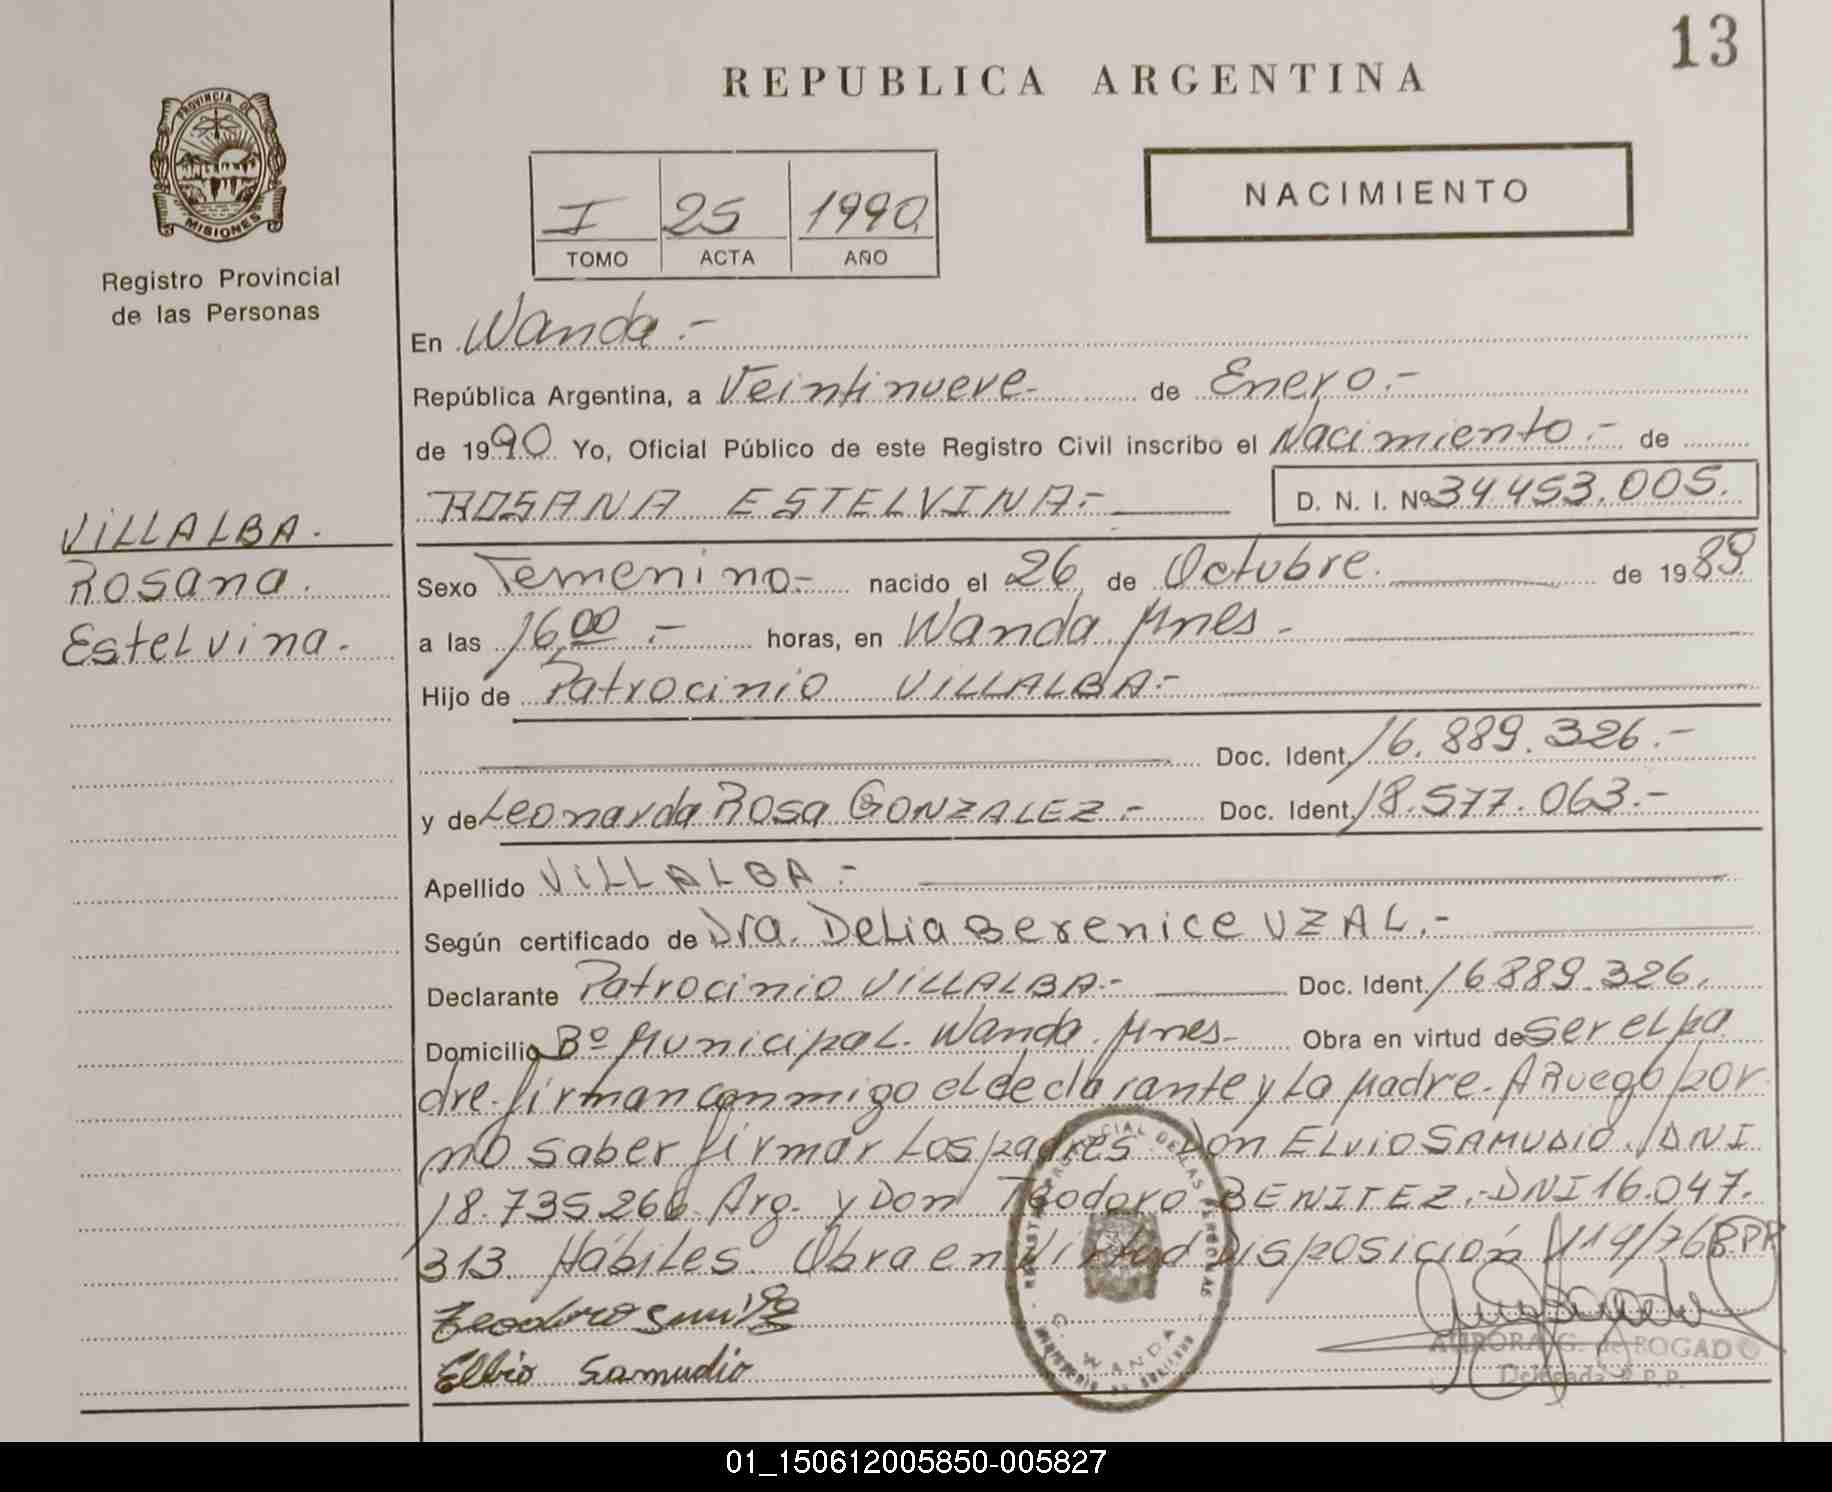 13
REPUBLICA ARGENTINA
PROVINCIA DE
MISIONES
Registro Provincial
de las Personas
I 25 1990
TOMO ACTA AÑO
NACIMIENTO
En Wanda.-
República Argentina, a Veintinueve.- de Enero.-
de 1990 Yo, Oficial Público de este Registro Civil inscribo el Nacimiento.- de
ROSANA ESTELVINA.- D. N. I. Nº 34.453.005.
VILLALBA.
Rosana.
Estelvina.
Sexo Femenino.- nacido el 26 de Octubre. de 1989
a las 16,00.- horas, en Wanda Mnes.-
Hijo de Patrocinio VILLALBA.-
Doc. Ident. 16.889.326.-
y de Leonarda Rosa GONZALEZ.- Doc. Ident. 18.577.063.-
Apellido VILLALBA.-
Según certificado de Dra. Delia Berenice UZAL.-
Declarante Patrocinio VILLALBA.- Doc. Ident. 16889.326.
Domicilio Bº Municipal. Wanda. Mnes.- Obra en virtud de ser el pa
dre. firman conmigo el declarante y la Madre. A Ruego por
no saber firmar Los padres Don ELVIO SAMUDIO. DNI
18.735.266 Arg. y Don Teodoro BENITEZ.- DNI 16.047.
313. Hábiles. Obra en Virtud Disposición Nº 114/768PR
Teodoro
Elbio Samudio
REGISTRO PROVINCIAL DE LAS PERSONAS
WANDA
AURORA G. de BOGADO
Delegada R.P.P.
01_150612005850-005827